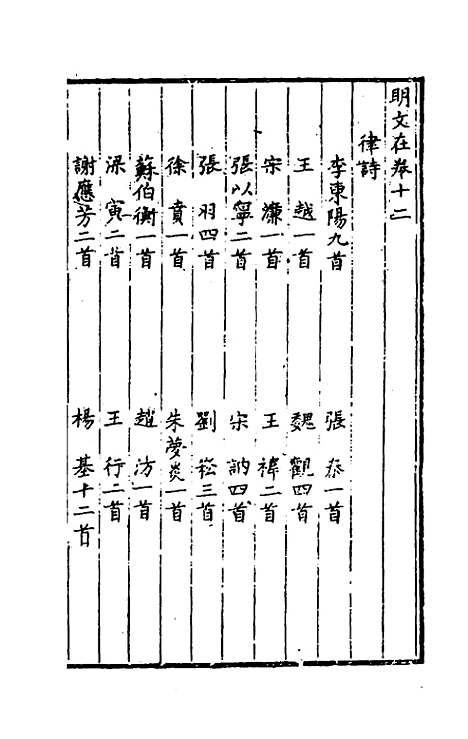 明文在卷十二
律詩
李東陽九首 張泰一首
王越一首 魏觀四首
宋濂一首 王褘二首
張以寧二首 宋訥四首
張羽四首 劉崧三首
徐賁一首 朱夢炎一首
蘇伯衡一首 趙汸一首
梁寅二首 王行二首
謝應芳二首 楊基十二首